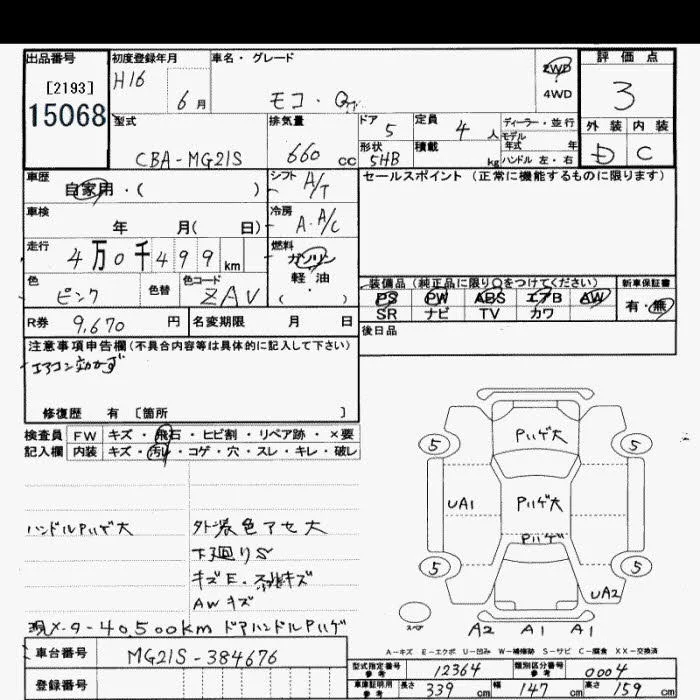 出品番号 初度登録年月 車名・グレード 評価点
[2193] H16 2WD
15068 6月 モコ・Q 4WD 3
型式 排気量 ドア 5 定員 4人 ディーラー・並行 外装 内装
モデル年式 年
CBA-MG21S 660 cc 形状 5HB 積載 kg ハンドル 左・右 D C
車歴 シフト A/T セールスポイント (正常に機能するものに限ります)
自家用・( )
車検 冷房 A・A/C
年 月( 日)
走行 燃料 ガソリン
4万0千499km 軽・油
色 色替 色コード ( ・ ) 装備品(純正品に限り○をつけてください) 新車保証書
ピンク ZAV PS PW ABS エアB AW 有・無
SR ナビ TV カワ
R券 9,670円 名変期限 月 日 後日品
注意事項申告欄(不具合内容等は具体的に記入して下さい)
エアコン効かず
修復歴 有 [箇所 ]
検査員 FW キズ・飛石・ヒビ割・リペア跡・×要
記入欄 内装 キズ・汚レ・コゲ・穴・スレ・キレ・破レ
Pハゲ大
5 5
UA1 Pハゲ大
Pハゲ
5 5
UA2
スペア A2 A1 A1
ハンドルPハゲ大 外装色アセ大
下廻りS
キズE・
AWキズ
現メーター40,500km ドアハンドルPハゲ
A-キズ E-エクボ U-凹み W-補修跡 S-サビ C-腐食 XX-交換済
車台番号 MG21S-384676
型式指定番号 参考 12364 類別区分番号 参考 0004
登録番号
車庫証明用 参考 長さ 339 cm 幅 147 cm 高さ 159 cm